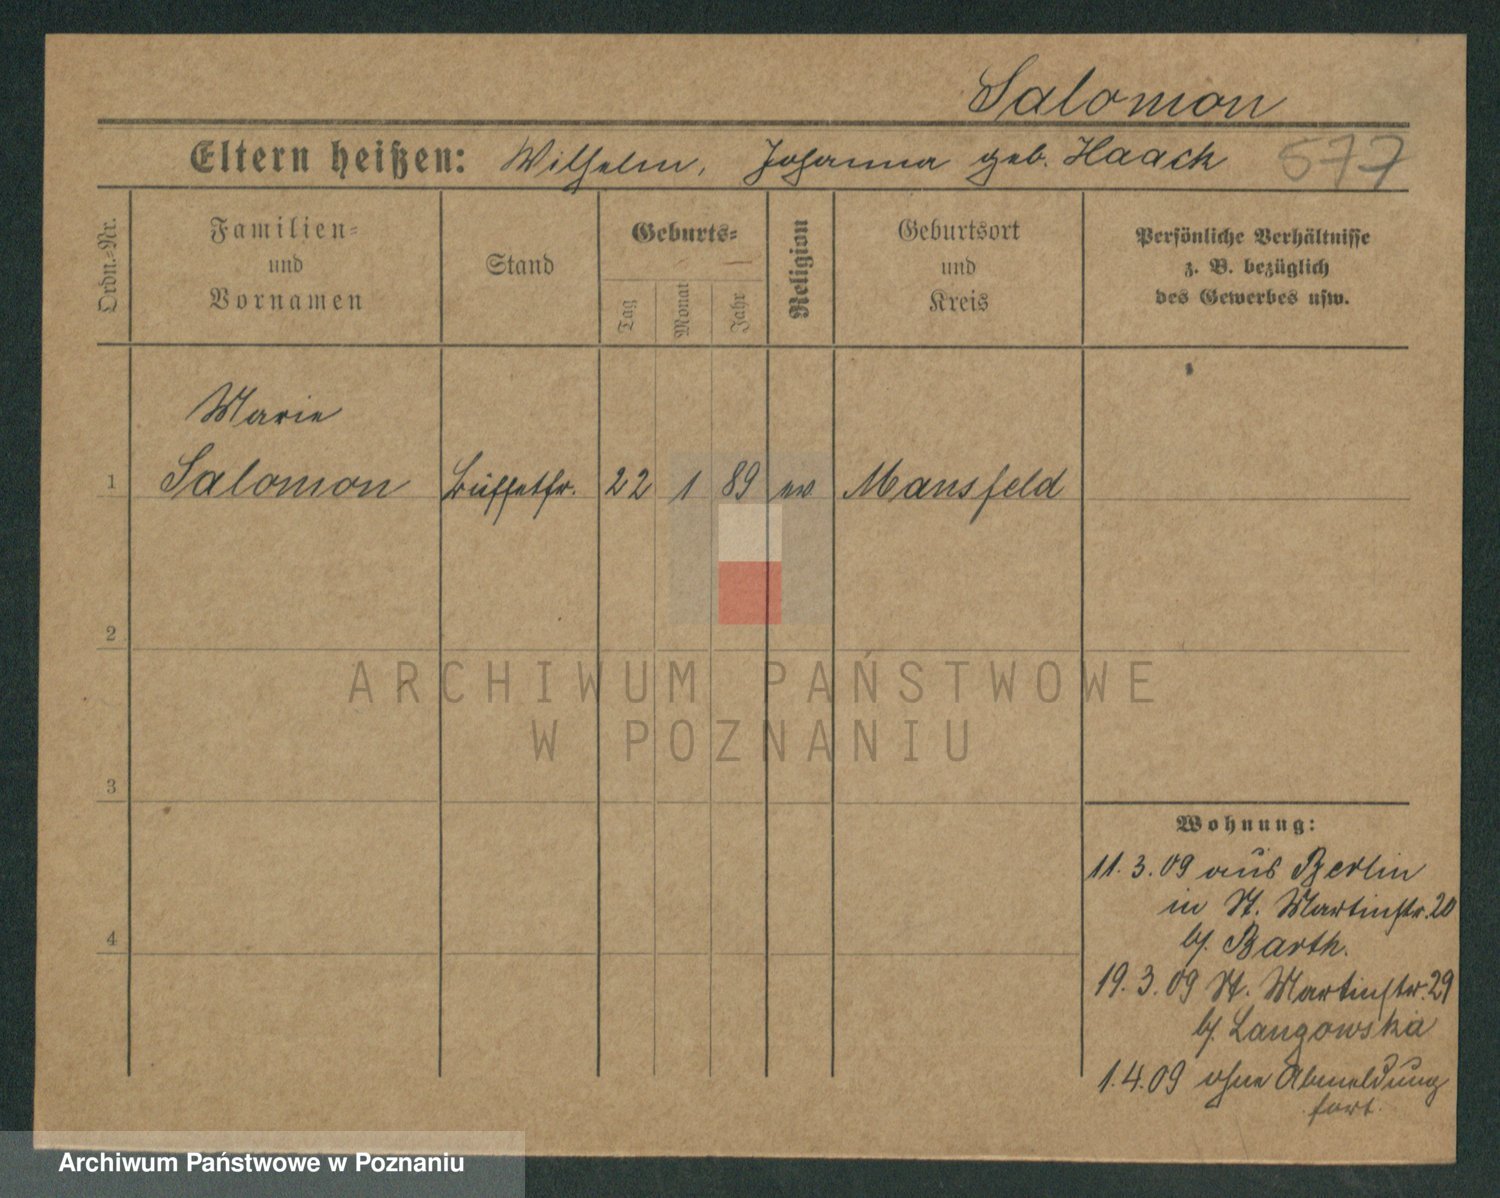 Salomon
Eltern heißen: Wilhelm, Johanna geb. Haack 577
Ordn.-Nr.
Familien-
und
Vornamen
Stand
Geburts-
Tag
Monat
Jahr
Religion
Geburtsort
und
Kreis
Persönliche Verhältnisse
z. B. bezüglich
des Gewerbes usw.
Marie
1 Salomon Büffetfr. 22 1 89 ev. Mansfeld
2
3
4
ARCHIWUM PAŃSTWOWE
W POZNANIU
Wohnung:
11.3.09 aus Berlin
in St. Martinstr. 20
b/. Barth.
19.3.09 St. Martinstr. 29
b/. Langowska
1.4.09 ohne Abmeldung
fort.
Archiwum Państwowe w Poznaniu